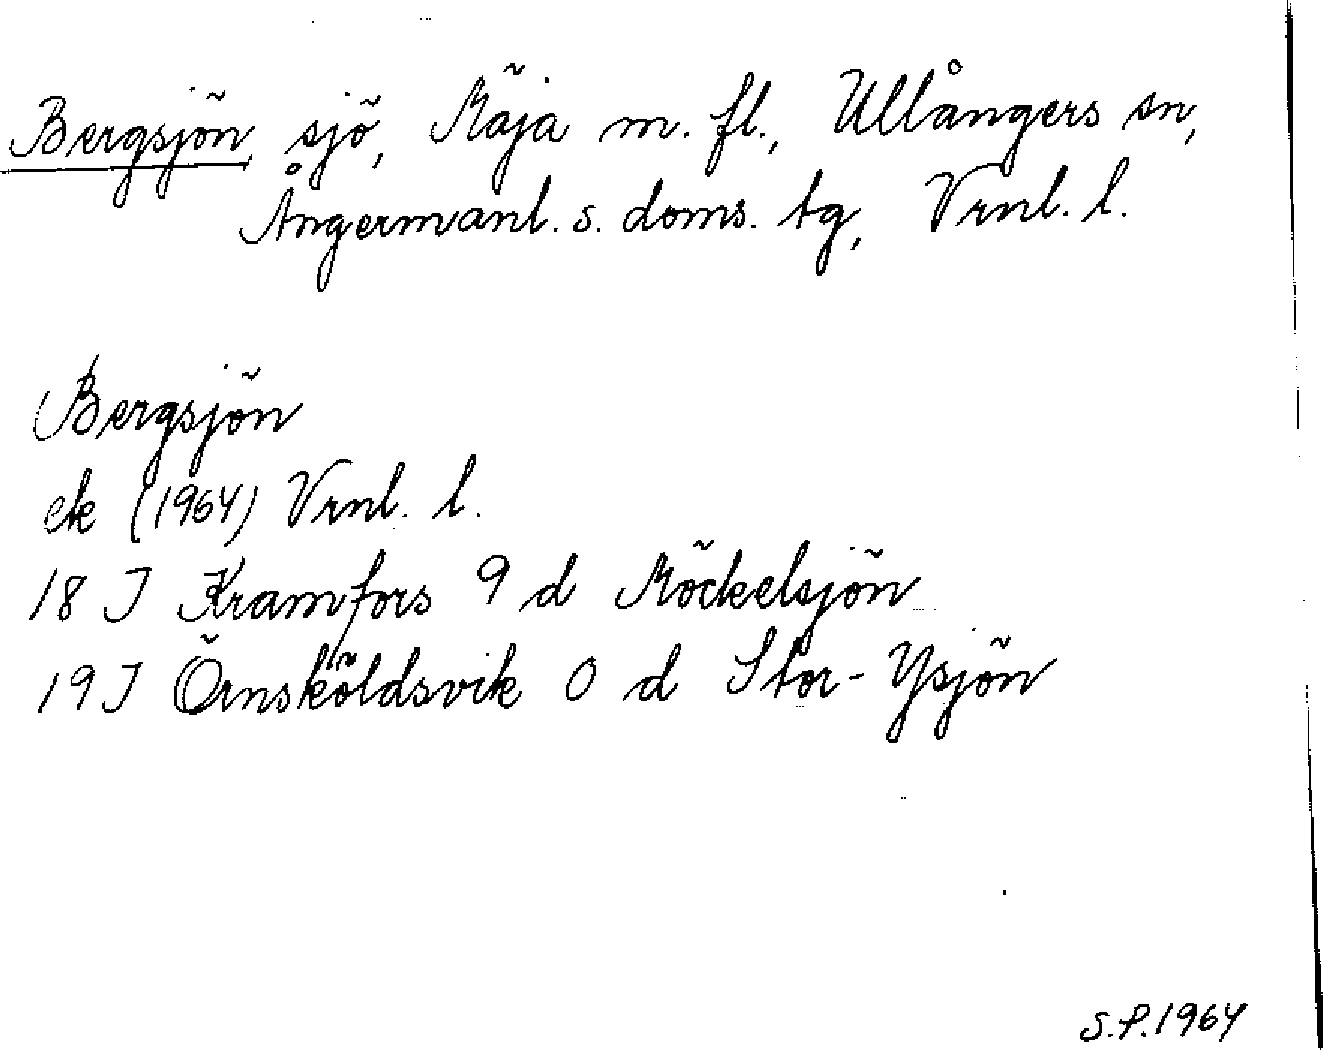 Bergsjön sjö, Mäja m. fl., Ullångers sn,
Ångermanl. s. doms. tg, Vrnl. l.
Bergsjön
ek (1964) Vrnl. l.
18 J Kramfors 9 d Möckelsjön
19 J Örnsköldsvik 0 d Stor-Ysjön
S.P. 1964